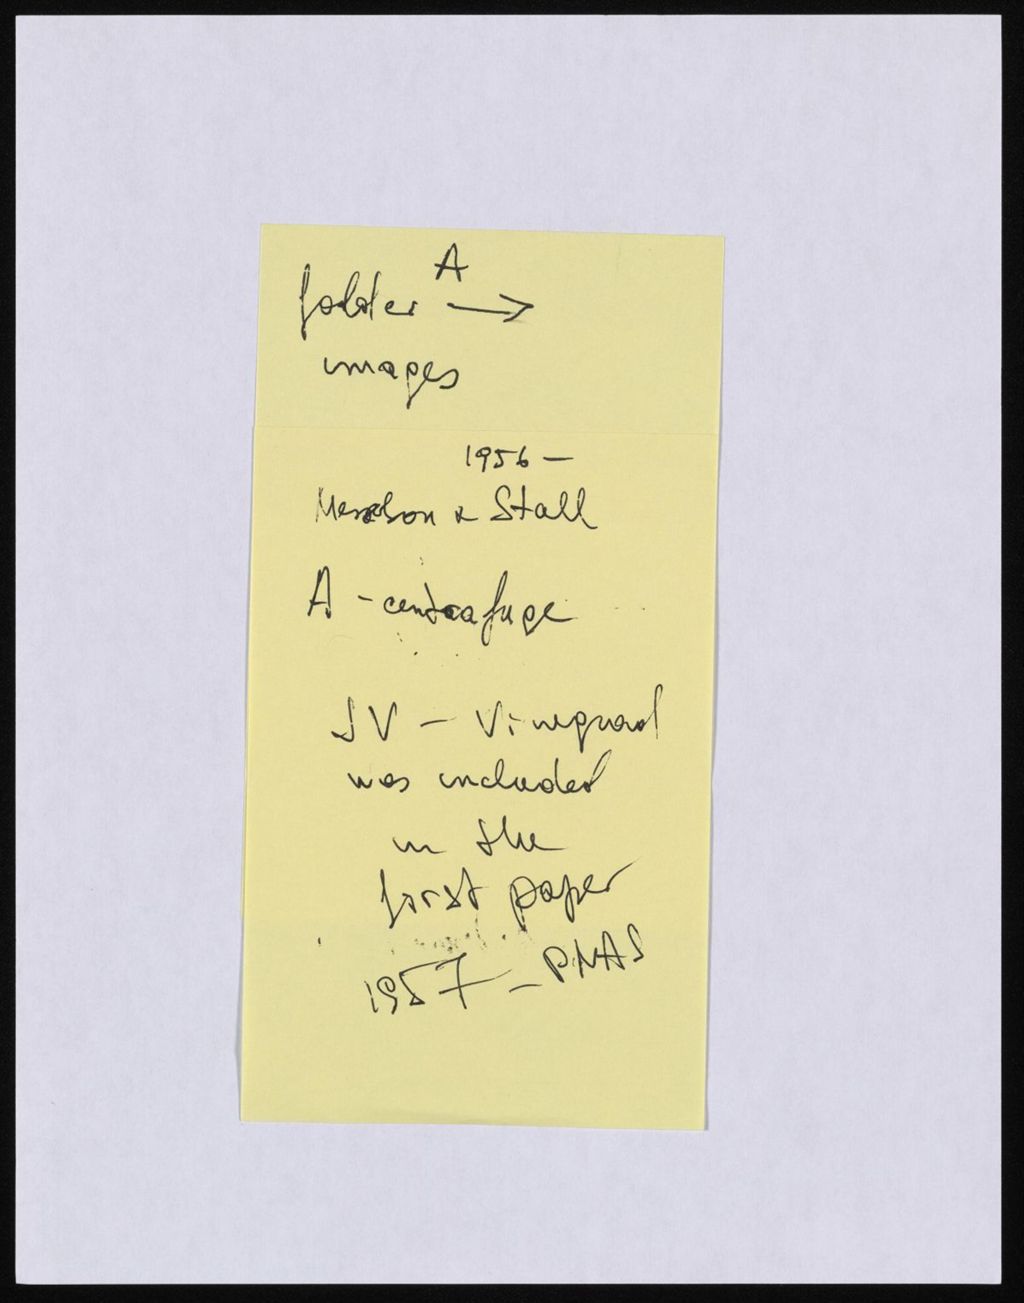 A
folder →
images
1956 —
Meselson & Stall
A - centrafuge
JV — Vinegrad
was included
in the
first paper
1957 — PNAS